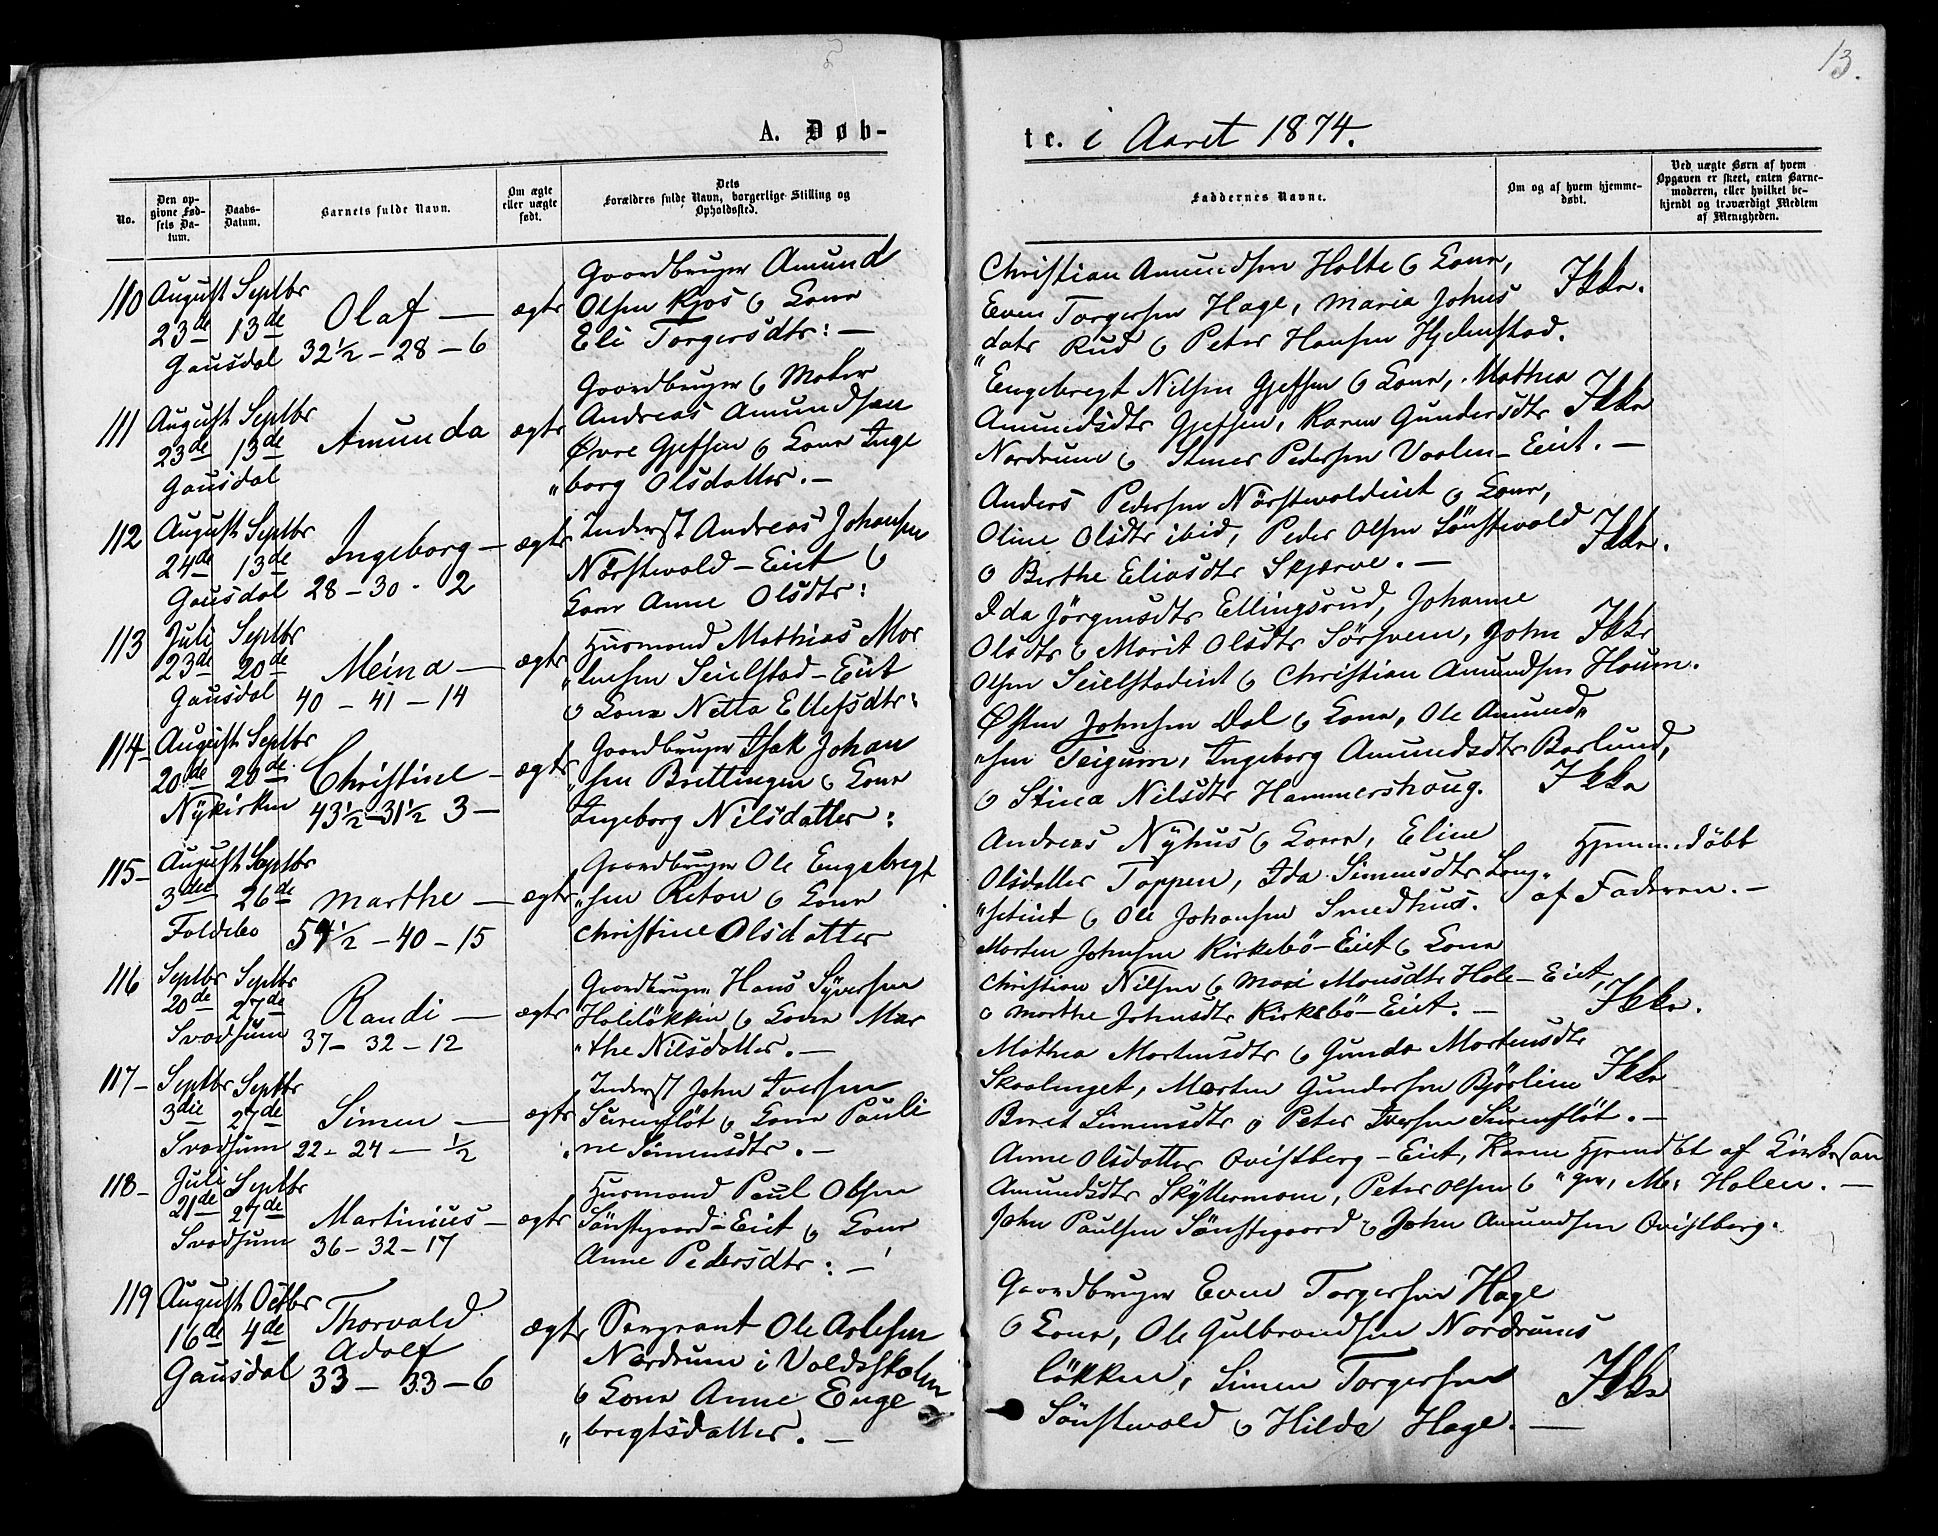 13.
A. Døb-
te. i Aaret 1874.
No.
Den opgivne Fødsels Datum.
Daabs-Datum.
Barnets fulde Navn.
Om ægte eller uægte født.
Dets Forældres fulde Navn, borgerlige Stilling og Opholdssted.
Faddernes Navne.
Om og af hvem hjemmedøbt.
Ved uægte Børn af hvem Opgaven er skeet, enten Barnemoderen, eller hvilket bekjendt og troværdigt Medlem af Menigheden.
110 August 23de Gausdal
Septbr 13de
Olaf —
32½ – 28 – 6
ægte
Gaardbruger Amund
Olsen Kjos & Kone
Eli Torgersdtr: —
Christian Amundsen Holte & Kone,
Even Torgersen Hage, Maria Johns
datr Rud & Peter Hansen Hjelmstad.
Ikke.
111 August 23de Gausdal
Septbr 13de
Amunda
ægte
Gaardbruger & Maler
Andreas Amundsen
Øvre Gjefsen & Kone Inge
"borg Olsdatter. —
Engebregt Nilsen Gjefsen & Kone, Mathea
Amundsdtr Gjefsen, Karen Gundersdtr
Nordrum & Simer Pedersen Vaalen-Eiet. —
Ikke
112 August 24de Gausdal
Septbr 13de
Ingeborg —
28 – 30 - 2
ægte
Inderst Andreas Johansen
Nørstevold – Eiet &
Kone Anne Olsdtr:
Anders Pedersen Nörstevoldeiet & Kone,
Oline Olsdtr ibid, Peder Olsen Sönstevold
& Berthe Eliasdtr Skjærve. —
Ikke.
113 Juli 23de Gausdal
Septbr 20de
Meina —
40 – 41 – 14
ægte
Husmand Mathias Mor
"tensen Seielstad – Eiet
& Kone Netta Ellefsdtr:
Ida Jörgensdtr Ellingsrud, Johanne
Olsdtr & Marit Olsdtr Sörsveen, John
Olsen Seielstadeiet & Christian Amundsen Houm.
Ikke
114- August 20de Nykirken
Septbr 20de
Christine —
43½ – 31½ 3 —
ægte
Gaardbruger Isak Johan
"sen Brettingen & Kone
Ingeborg Nilsdatter:
Østen Johnsen Dal & Kone, Ole Amund"
"sen Teigum, Ingeborg Amundsdtr Barlund,
& Stina Nilsdtr Hammershoug.
Ikke
115- August 3die Foldebo
Septbr 26de
Marthe —
54½ – 40 – 15
ægte
Gaardbruger Ole Engebregt
"sen Roton & Kone
Christine Olsdatter
Andreas Nyhus & Kone, Eline
Olsdatter Toppen, Ida Simensdtr Long"
"seteiet & Ole Johansen Smedhus.
Hjemmedöbt
af Faderen. —
116 Septbr 20de Svadsum
Septbr 27de
Randi —
37 – 32 – 12
ægte
Gaardbruger Hans Syversen
Holeløkken & Kone Mar
"the Nilsdatter. —
Morten Johnsen Kirkebö-Eiet & Kone
Christian Nilsen & Mari Monsdtr Hole – Eiet,
& Marthe Johnsdtr Kirkebö-Eiet. —
Ikke.
117- Septbr 3die Svadsum
Septbr 27de
Simen —
22 – 24 — ½
ægte
Inderst John Iversen
Surenflöt & Kone Pauli
"ne Simensdtr. —
Mathea Mortensdtr & Gunda Mortensdtr
Skaalenget, Morten Gundersen Bjørlien
Beret Simensdtr & Peter Iversen Surenflöt. —
Ikke
118- Juli 21de Svadsum
Septbr 27de
Martinius —
36 – 32 – 17
ægte
Husmand Paul Olsen
Sönstegaard – Eiet & Kone
Anne Pedersdtr: —
Anne Olsdatter Qvistberg – Eiet, Karen
Amundsdtr Skyttermoen, Peter Olsen &
John Paulsen Sönstegaard & John Amundsen Qvistberg.
Hjemdbt af Kirkesan
"ger, M: Holen. —
119 August 16de Gausdal
Octbr 4de
Thorvald
Adolf
33 – 33 – 6
ægte
Sergeant Ole Olesen
Nordrum i Voldsskolen
& Kone Anne Enge
"bregtsdatter. —
Gaardbruger Even Torgersen Hage
& Kone, Ole Gulbrandsen Nordrums
løkken, Simen Torgersen
Sönstevold & Hilda Hage. —
Ikke